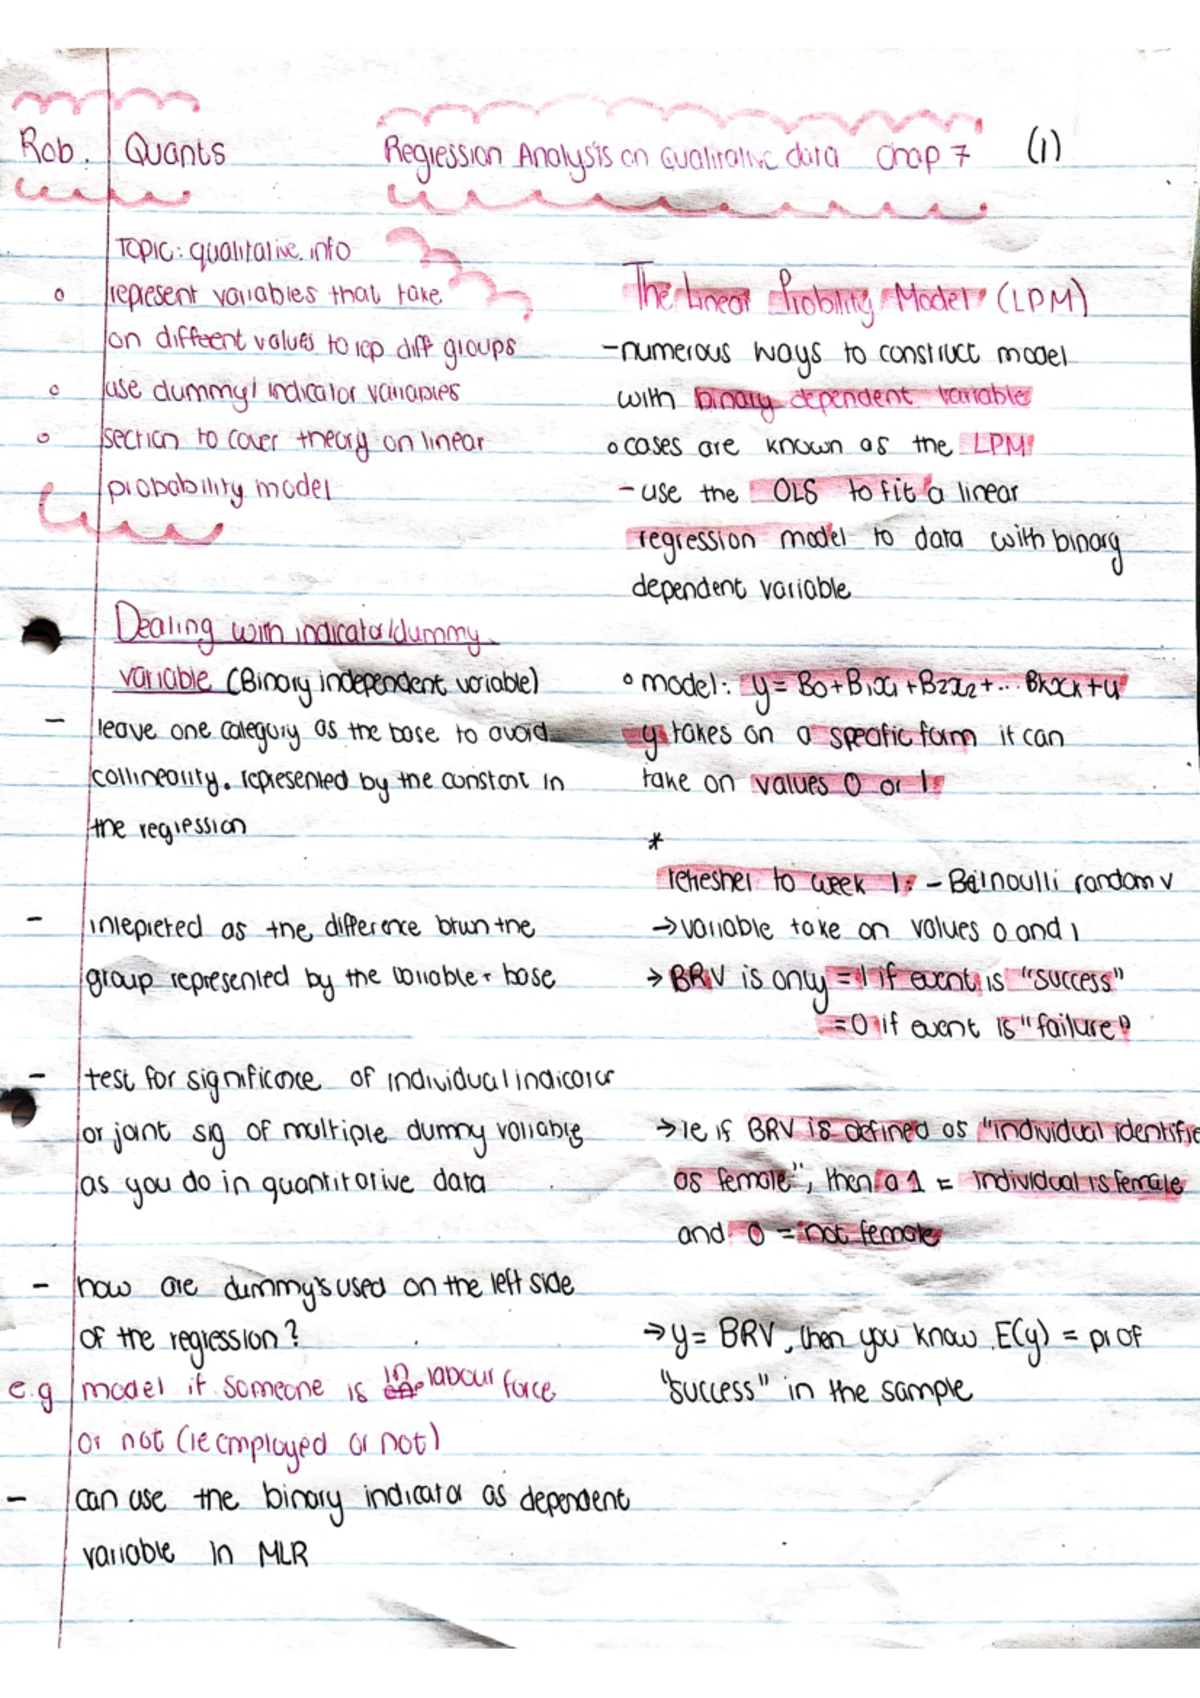 Rob. Quants Regression Analysis on Qualitative data Chap 7 (1)
TOPIC: qualitative info
o represent variables that take
on different values to rep diff groups
o use dummy/indicator variables
o section to cover theory on linear
probability model
Dealing with indicator/dummy
variable (Binary independent variable)
- leave one category as the base to avoid
collineality. represented by the constant in
the regression
- interpreted as the difference btwn the
group represented by the variable + base
- test for significance of individual indicator
or joint sig of multiple dummy variable
as you do in quantitative data
- how are dummy's used on the left side
of the regression?
e.g model if someone is in labour force
or not (ie employed or not)
- can use the binary indicator as dependent
variable in MLR
The Linear Probility Model (LPM)
- numerous ways to construct model
with binary dependent variable
o cases are known as the LPM
- use the OLS to fit a linear
regression model to data with binary
dependent variable
o model: y = B0+B1x1+B2x2+... Bkxk+u
y takes on a specific form it can
take on values 0 or 1.
*
refresher to week 1: - Bernoulli random v
→ variable take on values 0 and 1
→ BRV is only = 1 if event is "success"
=0 if event is "failure"
→ ie if BRV is defined as "individual identifie
as female", then a 1 = individual is female
and 0 = not female
→ y = BRV, then you know E(y) = pr of
"success" in the sample